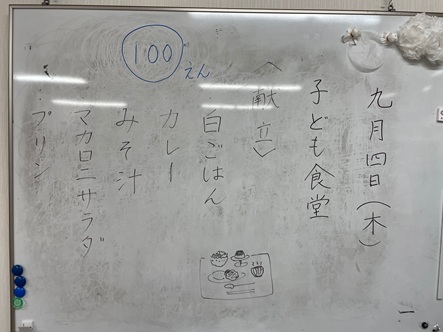 九月四日(木)
子ども食堂
〈献立〉
白ごはん
カレー
みそ汁
マカロニサラダ
プリン
100えん